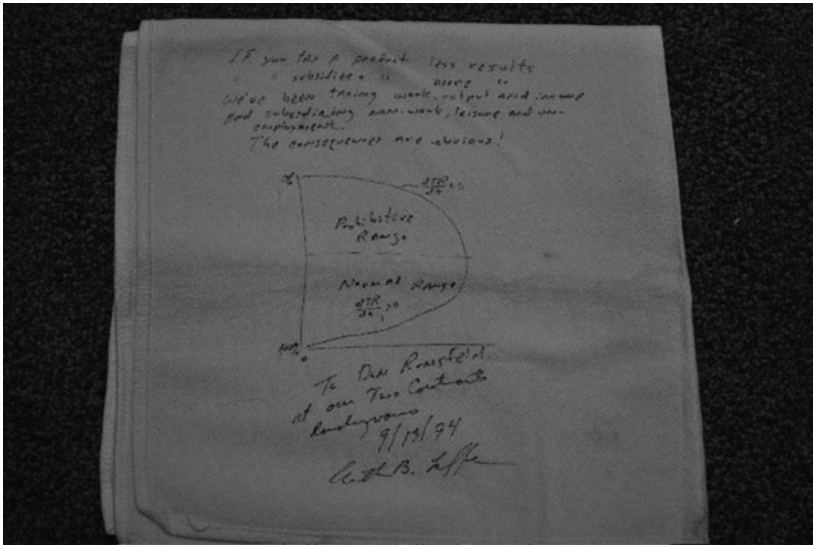 If you tax a product less results
subsidize a more
We've been taxing work, output and income
And subsidizing non-work, leisure and un-
employment.
The consequences are obvious!
dTR
Prohibitive
Range
Normal Range
dTR >0
0
To Don Rumsfeld
at our Two Continents
Rendezvous
9/13/94
Arthur B. Laffer